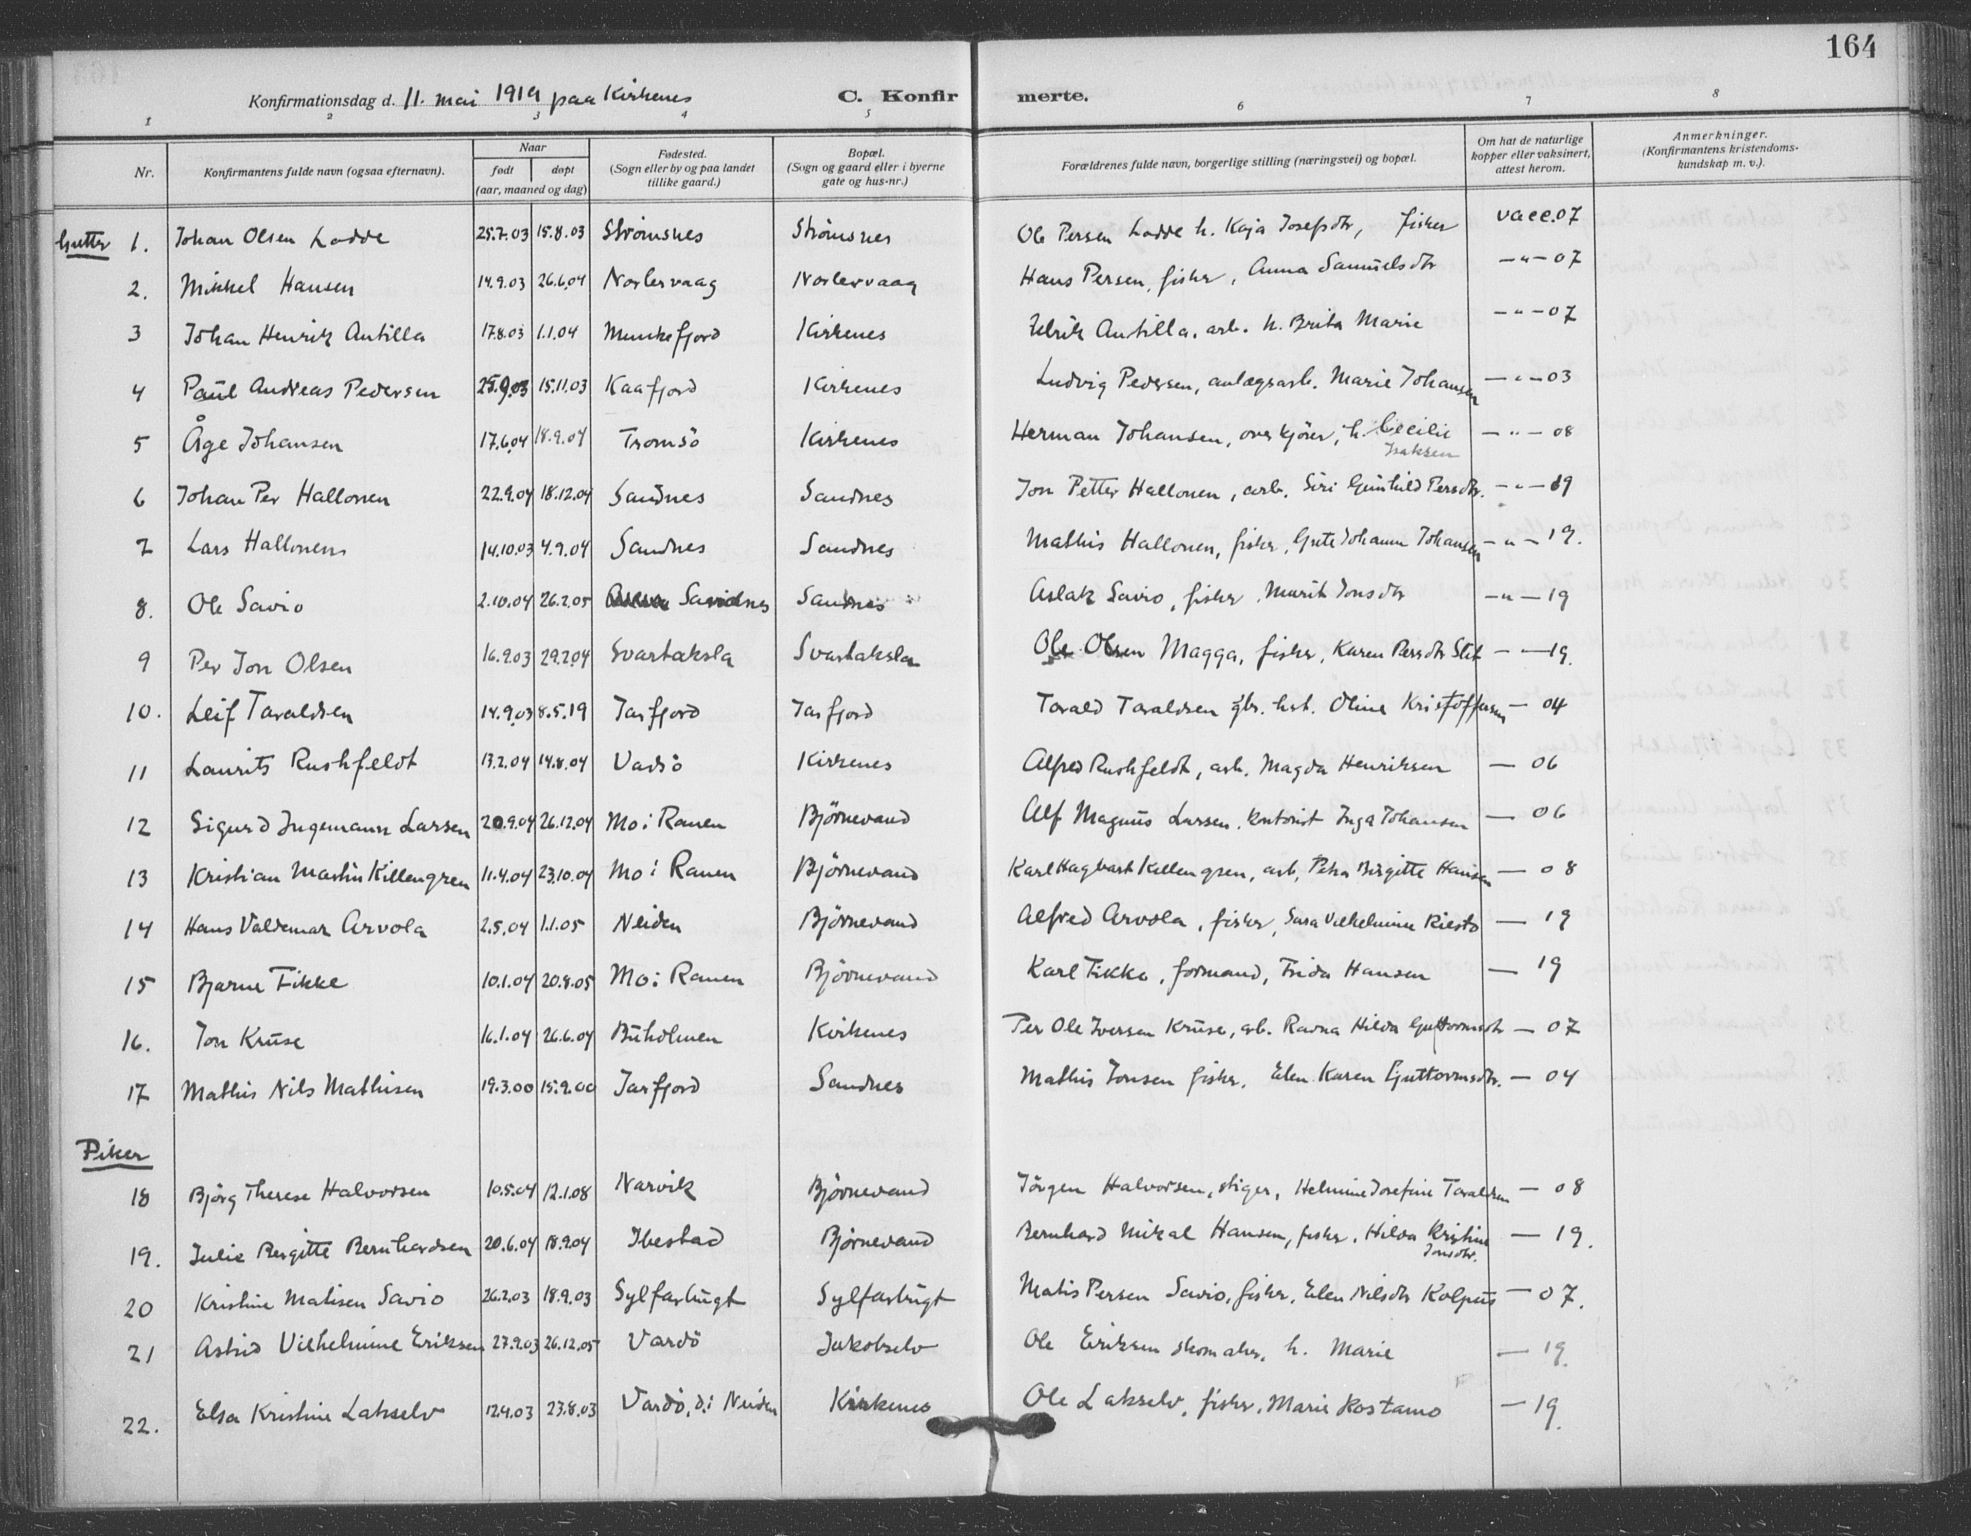 164
Konfirmationsdag d. 11. mai 1919 paa Kirkenes C. Konfirmerte.
1 2 3 4 5 6 7 8
Nr. Konfirmantens fulde navn (ogsaa efternavn). Naar født døpt (aar, maaned og dag) Fødested. (Sogn eller by og paa landet tillike gaard.) Bopæl. (Sogn og gaard eller i byerne gate og hus-nr.) Forældrenes fulde navn, borgerlige stilling (næringsvei) og bopæl. Om hat de naturlige kopper eller vaksinert, attest herom. Anmerkninger. (Konfirmantens kristendomskundskap m. v.).
Gutter 1. Johan Olsen Ladde 25.7.03 15.8.03 Strømsnes Strømsnes Ole Persen Ladde h. Kaja Josefsdtr, fisker vacc. 07
2. Mikkel Hansen 14.9.03 26.6.04 Norlervaag Norlervaag Hans Persen, fisker, Anna Samuelsdtr -"- 07
3 Johan Henrik Antilla 17.8.03 1.1.04 Munkefjord Kirkenes Ulrik Antilla, arb. h. Brita Marie -"- 07
4 Paul Andreas Pedersen 25.9.03 15.11.03 Kaafjord Kirkenes Ludvig Pedersen, anlægsarb. Marie Johansen -"- 03
5 Åge Johansen 17.6.04 18.9.04 Tromsö Kirkenes Herman Johansen, overkjører, h. Cecilie Isaksen -"- 08
6 Johan Per Hallonen 22.9.04 18.12.04 Sandnes Sandnes Jon Petter Hallonen, arb. Siri Gunhild Persdtr. -"- 19
7 Lars Hallonen 14.10.03 4.9.04 Sandnes Sandnes Mathis Hallonen, fisker, Johanne Johansen -"- 19.
8. Ole Savio 2.10.04 26.2.05 Sandnes Sandnes Aslak Savio, fisker, Marit Jonsdtr -"- 19
9 Per Jon Olsen 16.9.03 29.2.04 Svartaksla Svartaksla Ole Olsen Magga, fisker, Karen Persdtr - - 19.
10. Leif Taraldsen 14.9.03 8.5.19 Jarfjord Jarfjord Tarald Taraldsen gbr. hst. Oline Kristoffersen - 04
11 Laurits Rushfeldt 13.2.04 14.8.04 Vadsö Kirkenes Alfred Rushfeldt, arb. Magda Henriksen - 06
12 Sigurd Ingemann Larsen 20.9.04 26.12.04 Mo i Ranen Björnevand Alf Magnus Larsen, kontorist Inga Johansen - 06
13 Kristian Martin Killengren 11.4.04 23.10.04 Mo i Ranen Björnevand Karl Hagbart Killengren, arb, Petra Birgitte Hansen - 08
14 Hans Valdemar Arvola 2.5.04 1.1.05 Neiden Björnevand Alfred Arvola, fisker, Sara Vilhelmine Kiesto - 19
15 Bjarne Fikke 10.1.04 20.8.05 Mo i Ranen Björnevand Karl Fikke, formand, Frida Hansen - 19
16. Jon Kruse 16.1.04 26.6.04 Buholmen Kirkenes Per Ole Iversen Kruse, arb. Ravna Hilda Guttormsdtr - 07
17 Mathis Nils Mathisen 19.3.00 15.9.00 Jarfjord Sandnes Mathis Jonsen fisker, Elen Karen Guttormsdtr. - 04
Piker
18 Björg Therese Halvorsen 10.5.04 12.1.08 Narvik Björnevand Jörgen Halvorsen, stiger, Helmine Josefine Taraldsen - 08
19. Julie Bergitte Bernhardsen 20.6.04 18.9.04 Ibestad Björnevand Bernhard Mikal Hansen, fisker, Hilda Kristine Jonsdtr. - 19.
20 Kristine Matisen Savio 26.2.03 18.9.03 Sylfarbugt Sylfarbugt Matis Persen Savio, fisker, Elen Nilsdtr Kolpus - 07.
21 Astrid Vilhelmine Eriksen 27.9.03 26.12.05 Vardö Jakobselv Ole Eriksen skomaker, h. Marie - 19.
22. Elsa Kristine Lakselv 12.4.03 23.8.03 Vardö, d. i Neiden Kirkenes Ole Lakselv, fisker, Marie Kostamo - 19.